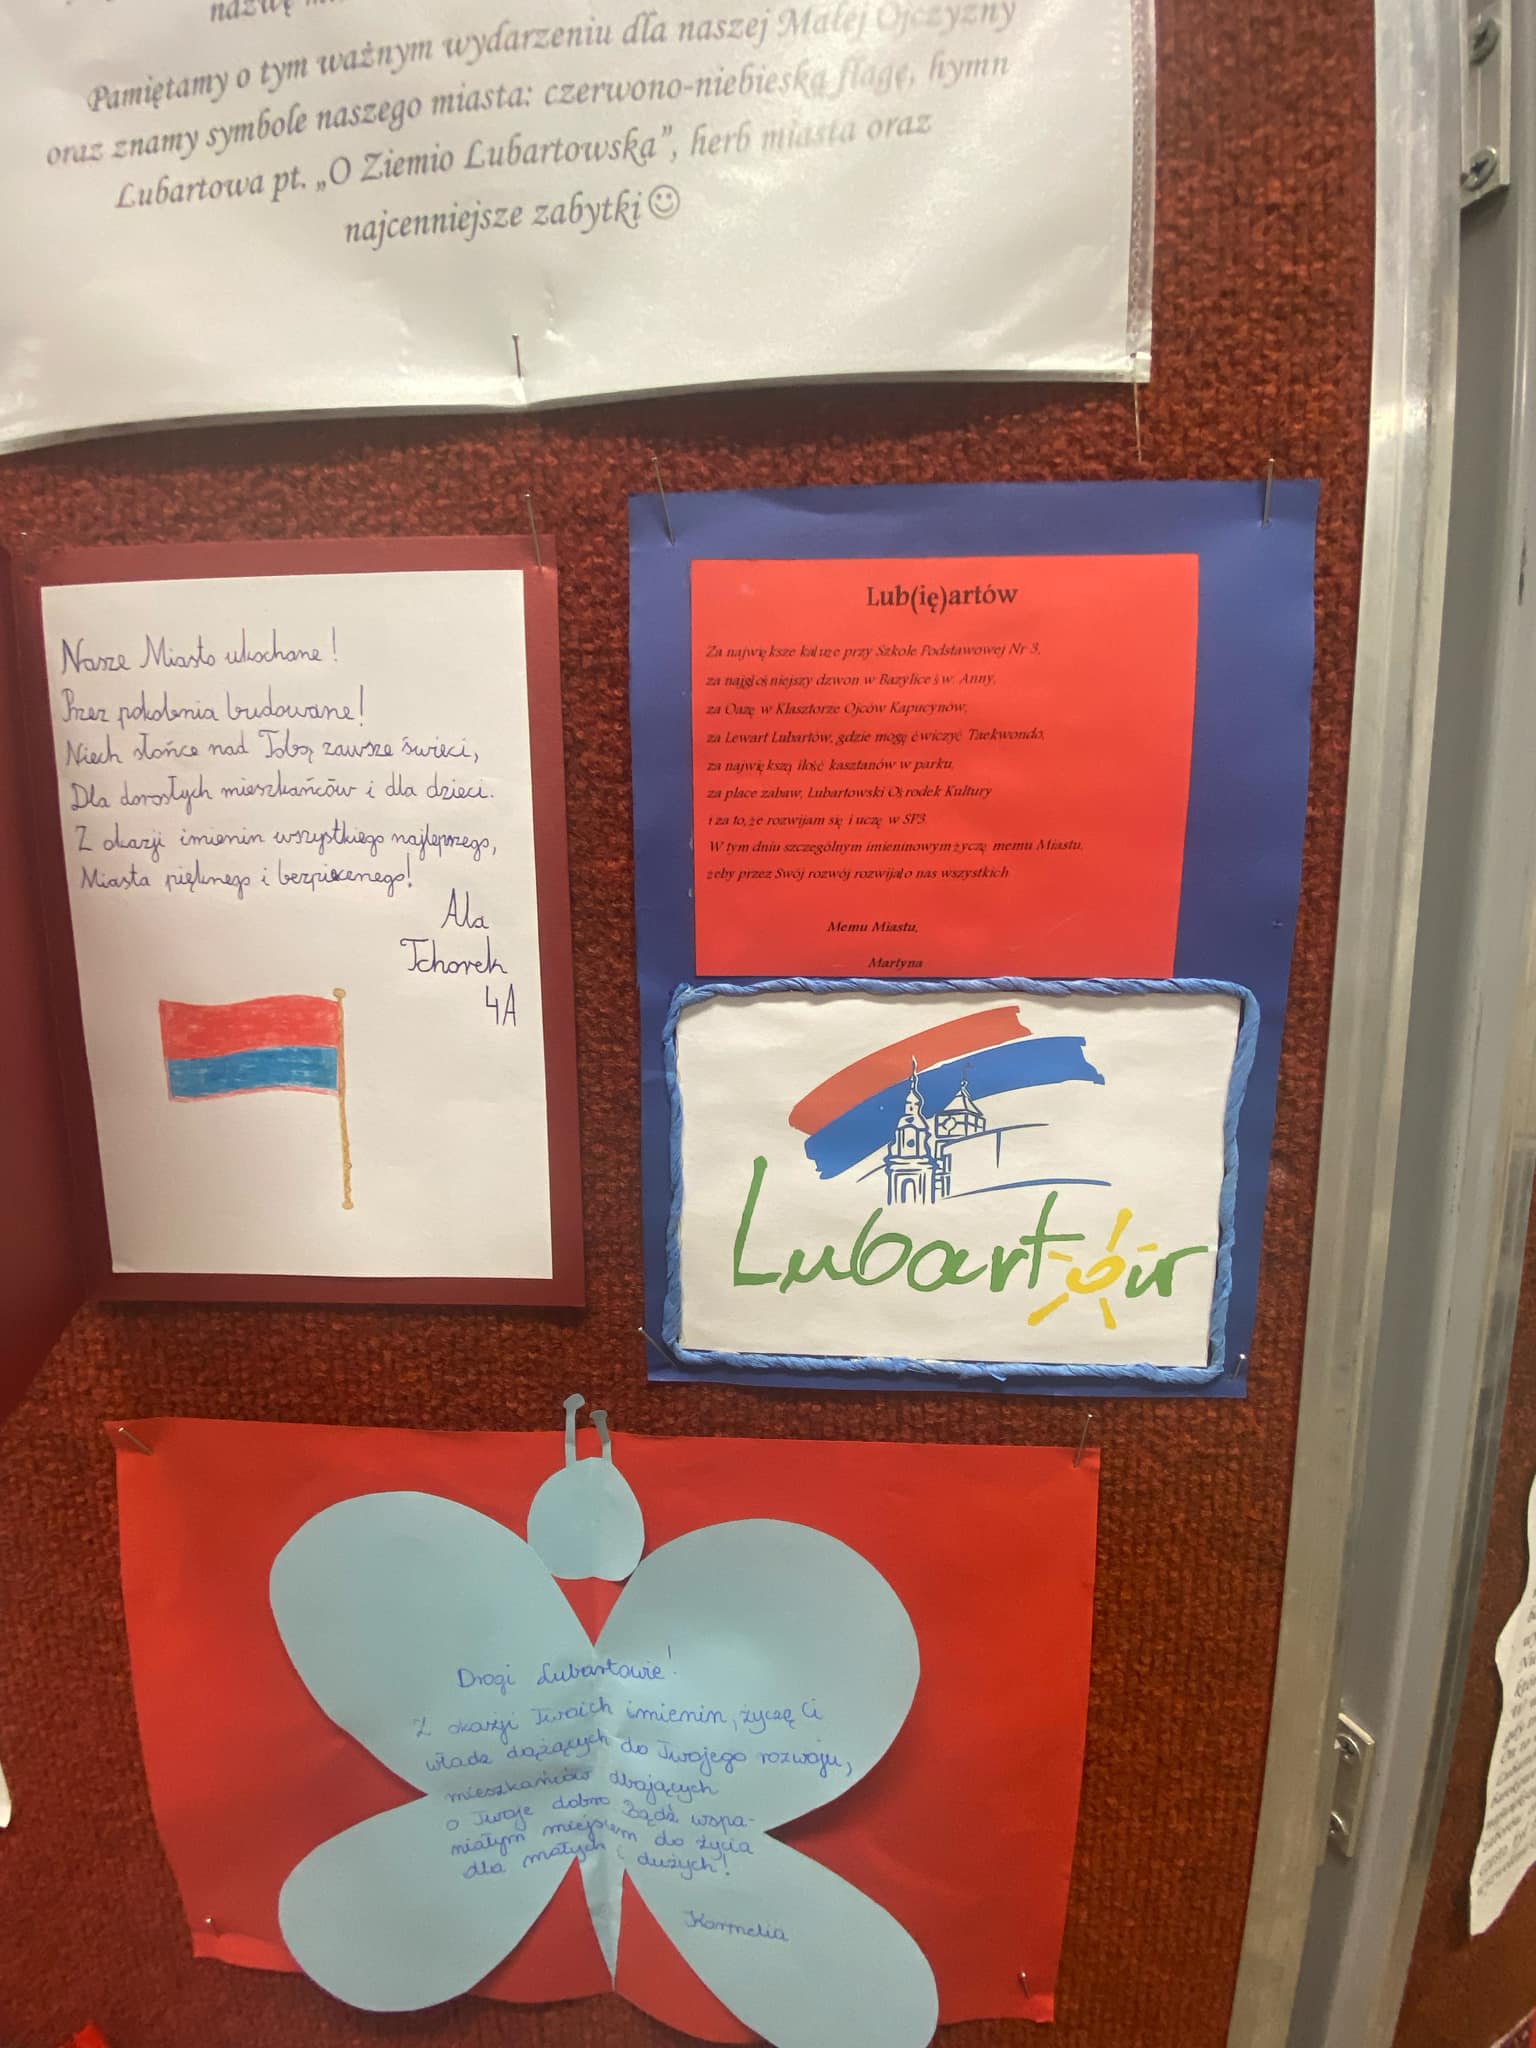 Pamiętamy o tym ważnym wydarzeniu dla naszej Małej Ojczyzny
oraz znamy symbole naszego miasta: czerwono-niebieską flagę, hymn
Lubartowa pt. „O Ziemio Lubartowska”, herb miasta oraz
najcenniejsze zabytki☺
Nasze Miasto ukochane!
Przez pokolenia budowane!
Niech słońce nad Tobą zawsze świeci,
Dla dorosłych mieszkańców i dla dzieci.
Z okazji imienin wszystkiego najlepszego,
Miasta pięknego i bezpiecznego!
Ala
Tchorek
4A
Lub(ię)artów
Za największe kałuże przy Szkole Podstawowej Nr 3,
za najgłośniejszy dzwon w Bazylice św. Anny,
za Oazę w Klasztorze Ojców Kapucynów,
za Lewart Lubartów, gdzie mogę ćwiczyć Taekwondo,
za największą ilość kasztanów w parku,
za place zabaw, Lubartowski Ośrodek Kultury
i za to, że rozwijam się i uczę w SP3.
W tym dniu szczególnym imieninowym życzę memu Miastu,
żeby przez Swój rozwój rozwijało nas wszystkich
Memu Miastu,
Martyna
Lubartów
Drogi Lubartowie!
Z okazji Twoich imienin, życzę Ci
władz dążących do Twojego rozwoju,
mieszkańców dbających
o Twoje dobro Bądź wspa-
niałym miejscem do życia
dla małych i dużych!
Karmelia